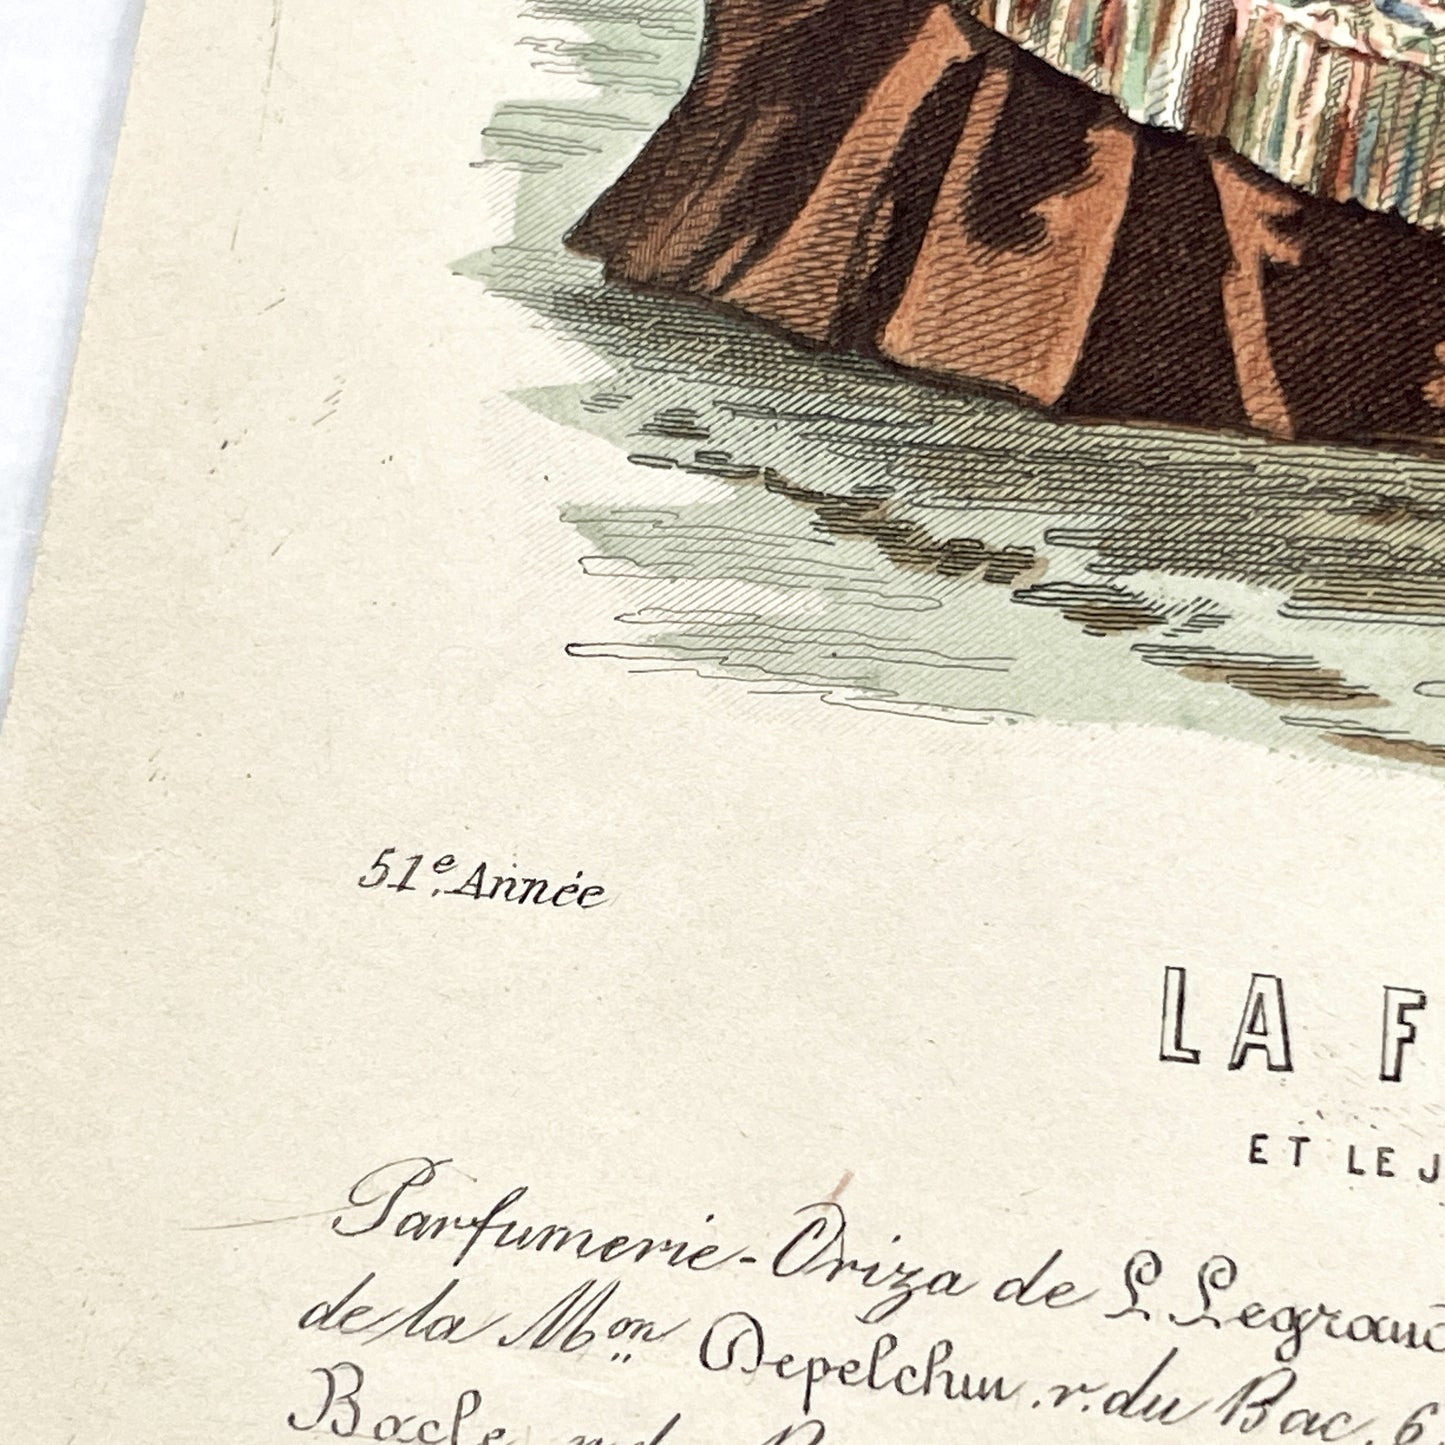 51e. Année
LA F
ET LE J
Parfumerie-Oriza de L. Legrand
de la Mon Depelchin r. du Bac, 6
Bacle